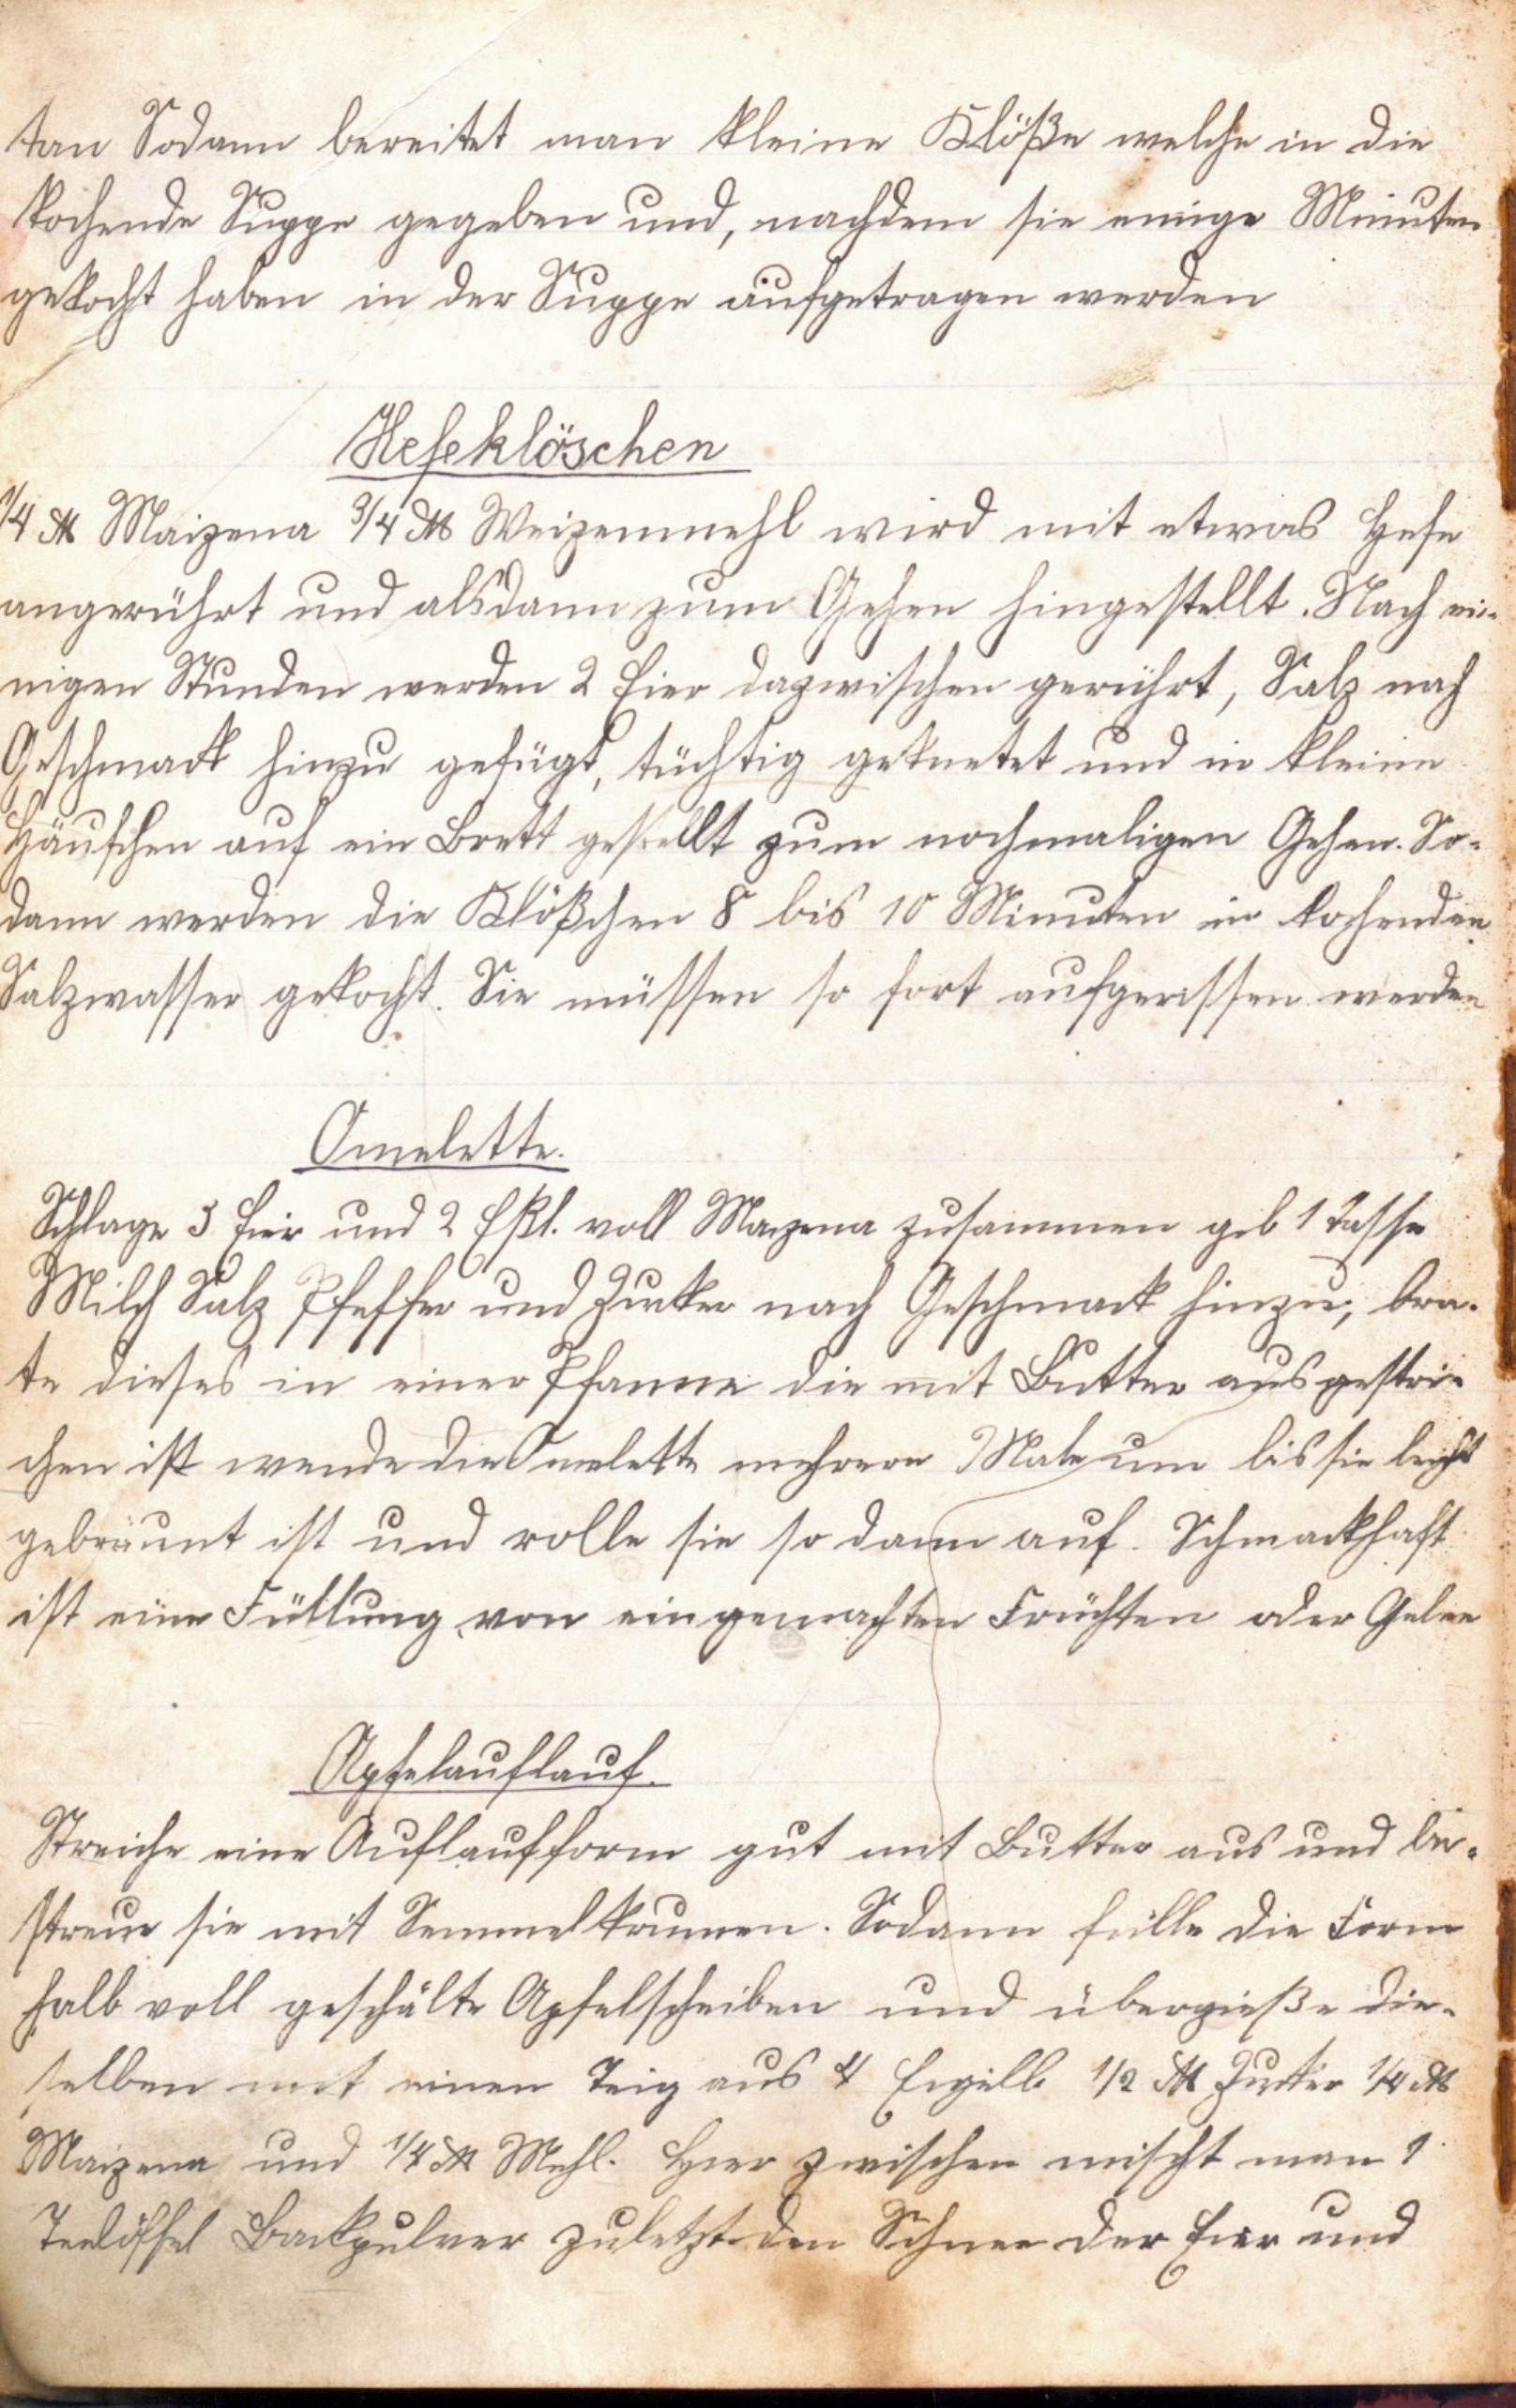 ten Sodann bereitet man kleine Klöße welche in die
kochende Suppe gegeben und, nachdem sie einige Minuten
gekocht haben in der Suppe aufgetragen werden
Hefeklöschen
1/4 ℔ Maizena 3/4 ℔ Weizenmehl wird mit etwas Hefe
angerührt und alsdann zum Gehen hingestellt. Nach ei-
nigen Stunden werden 2 Eier dazwischen gerührt, Salz nach
Geschmack hinzu gefügt, tüchtig geknetet und in kleine
Häufchen auf ein Brett gestellt zum nochmaligen Gehen. So-
dann werden die Klößchen 8 bis 10 Minuten in kochenden
Salzwasser gekocht. Sie müssen so fort aufgerissen werden
Omelette.
Schlage 3 Eier und 2 Eßl. voll Maizena zusammen gib 1 Tasse
Milch Salz Pfeffer und Zucker nach Geschmack hinzu, bra-
te dieses in einer Pfanne die mit Butter ausgestri-
chen ist wende die Omelette mehrere Male um bis sie leicht
gebräunt ist und rolle sie so dann auf. Schmackhaft
ist eine Füllung von eingemachten Früchten oder Gelee
Apfelauflauf.
Streiche eine Auflaufform gut mit Butter aus und be-
streue sie mit Semmelkrumen. Sodann fülle die Form
halb voll geschälte Apfelscheiben und übergieße die-
selben mit einen Teig aus 4 Eigelb 1/2 ℔ Zucker 1/4 ℔
Maizena und 1/4 ℔ Mehl. Hier zwischen mischt man 1
Teelöffel Backpulver zuletzt den Schnee der Eier und